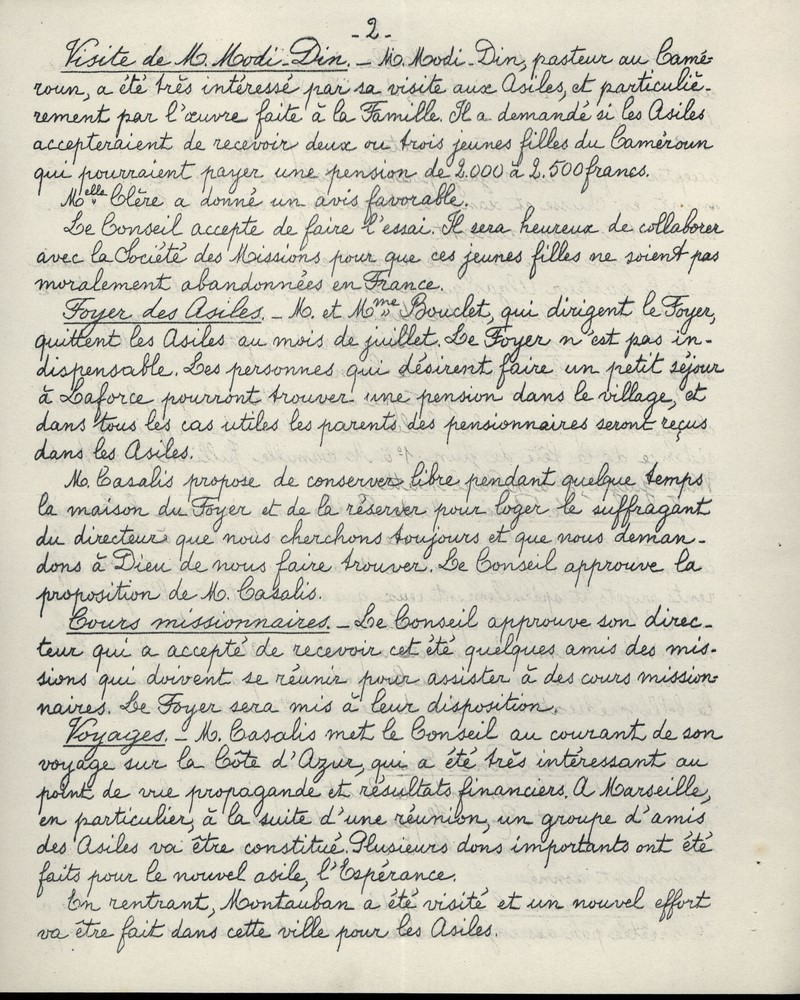 - 2 -
Visite de M. Modi-Din. — M. Modi-Din, pasteur au Came-
roun, a été très intéressé par sa visite aux Asiles, et particuliè-
rement par l'œuvre faite à la Famille. Il a demandé si les Asiles
accepteraient de recevoir deux ou trois jeunes filles du Caméroun
qui pourraient payer une pension de 2.000 à 2.500 francs.
Melle Clère a donné un avis favorable.
Le Conseil accepte de faire l'essai. Il sera heureux de collaborer
avec la Société des Missions pour que ces jeunes filles ne soient pas
moralement abandonnées en France.
Foyer des Asiles. — M. et Mme Bouclet, qui dirigent le Foyer,
quittent les Asiles au mois de juillet. Le Foyer n'est pas in-
dispensable. Les personnes qui désirent faire un petit séjour
à Laforce pourront trouver une pension dans le village, et
dans tous les cas utiles les parents des pensionnaires seront reçus
dans les Asiles.
M. Casalis propose de conserver libre pendant quelque temps
la maison du Foyer et de la réserver pour loger le suffragant
du directeur que nous cherchons toujours et que nous deman-
dons à Dieu de nous faire trouver. Le Conseil approuve la
proposition de M. Casalis.
Cours missionnaires. — Le Conseil approuve son direc-
teur qui a accepté de recevoir cet été quelques amis des mis-
sions qui doivent se réunir pour assister à des cours mission-
naires. Le Foyer sera mis à leur disposition.
Voyages. — M. Casalis met le Conseil au courant de son
voyage sur la Côte d'Azur, qui a été très intéressant au
point de vue propagande et résultats financiers. A Marseille,
en particulier, à la suite d'une réunion, un groupe d'amis
des Asiles va être constitué. Plusieurs dons importants ont été
faits pour le nouvel asile, l'Espérance.
En rentrant, Montauban a été visité et un nouvel effort
va être fait dans cette ville pour les Asiles.